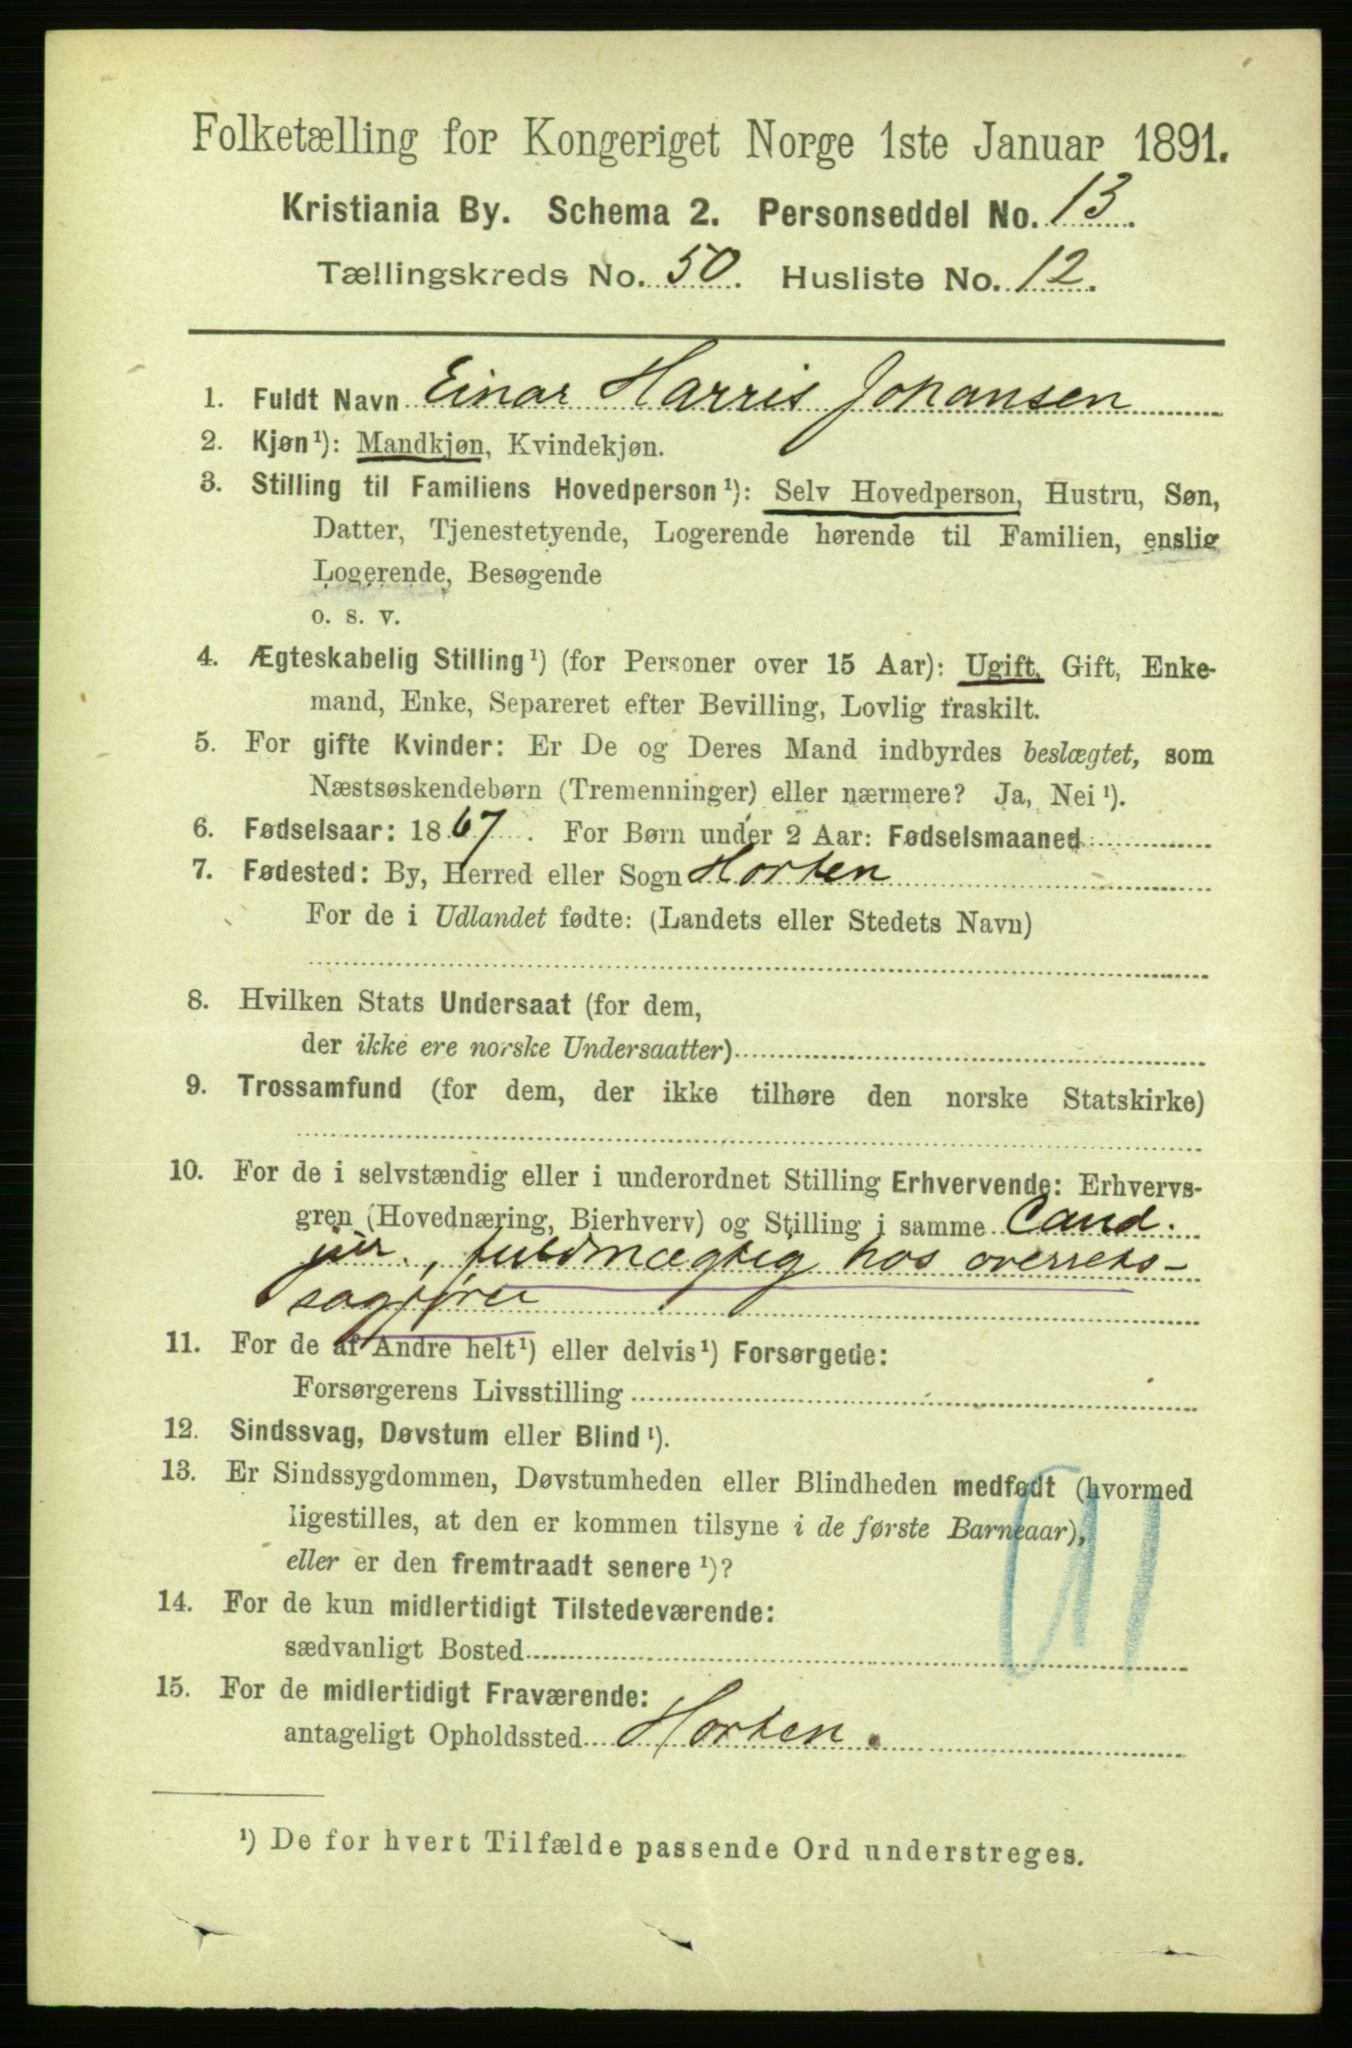 Folketælling for Kongeriget Norge 1ste Januar 1891.
Kristiania By. Schema 2. Personseddel No. 13.
Tællingskreds No. 50. Husliste No. 12.
1. Fuldt Navn Einar Harris Johansen
2. Kjøn¹): Mandkjøn, Kvindekjøn.
3. Stilling til Familiens Hovedperson¹): Selv Hovedperson, Hustru, Søn,
Datter, Tjenestetyende, Logerende hørende til Familien, enslig
Logerende, Besøgende
o. s. v.
4. Ægteskabelig Stilling¹) (for Personer over 15 Aar): Ugift, Gift, Enke-
mand, Enke, Separeret efter Bevilling, Lovlig fraskilt.
5. For gifte Kvinder: Er De og Deres Mand indbyrdes beslægtet, som
Næstsøskendebørn (Tremenninger) eller nærmere? Ja, Nei¹).
6. Fødselsaar: 1867. For Børn under 2 Aar: Fødselsmaaned
7. Fødested: By, Herred eller Sogn Horten
For de i Udlandet fødte: (Landets eller Stedets Navn)
8. Hvilken Stats Undersaat (for dem,
der ikke ere norske Undersaatter)
9. Trossamfund (for dem, der ikke tilhøre den norske Statskirke)
10. For de i selvstændig eller i underordnet Stilling Erhvervende: Erhvervs-
gren (Hovednæring, Bierhverv) og Stilling i samme Cand.
jur., fuldmægtig hos overrets-
sagfører
11. For de af Andre helt¹) eller delvis¹) Forsørgede:
Forsørgerens Livsstilling
12. Sindssvag, Døvstum eller Blind¹).
13. Er Sindssygdommen, Døvstumheden eller Blindheden medfødt (hvormed
ligestilles, at den er kommen tilsyne i de første Barneaar),
eller er den fremtraadt senere¹)?
14. For de kun midlertidigt Tilstedeværende:
sædvanligt Bosted
15. For de midlertidigt Fraværende:
antageligt Opholdssted Horten.
¹) De for hvert Tilfælde passende Ord understreges.